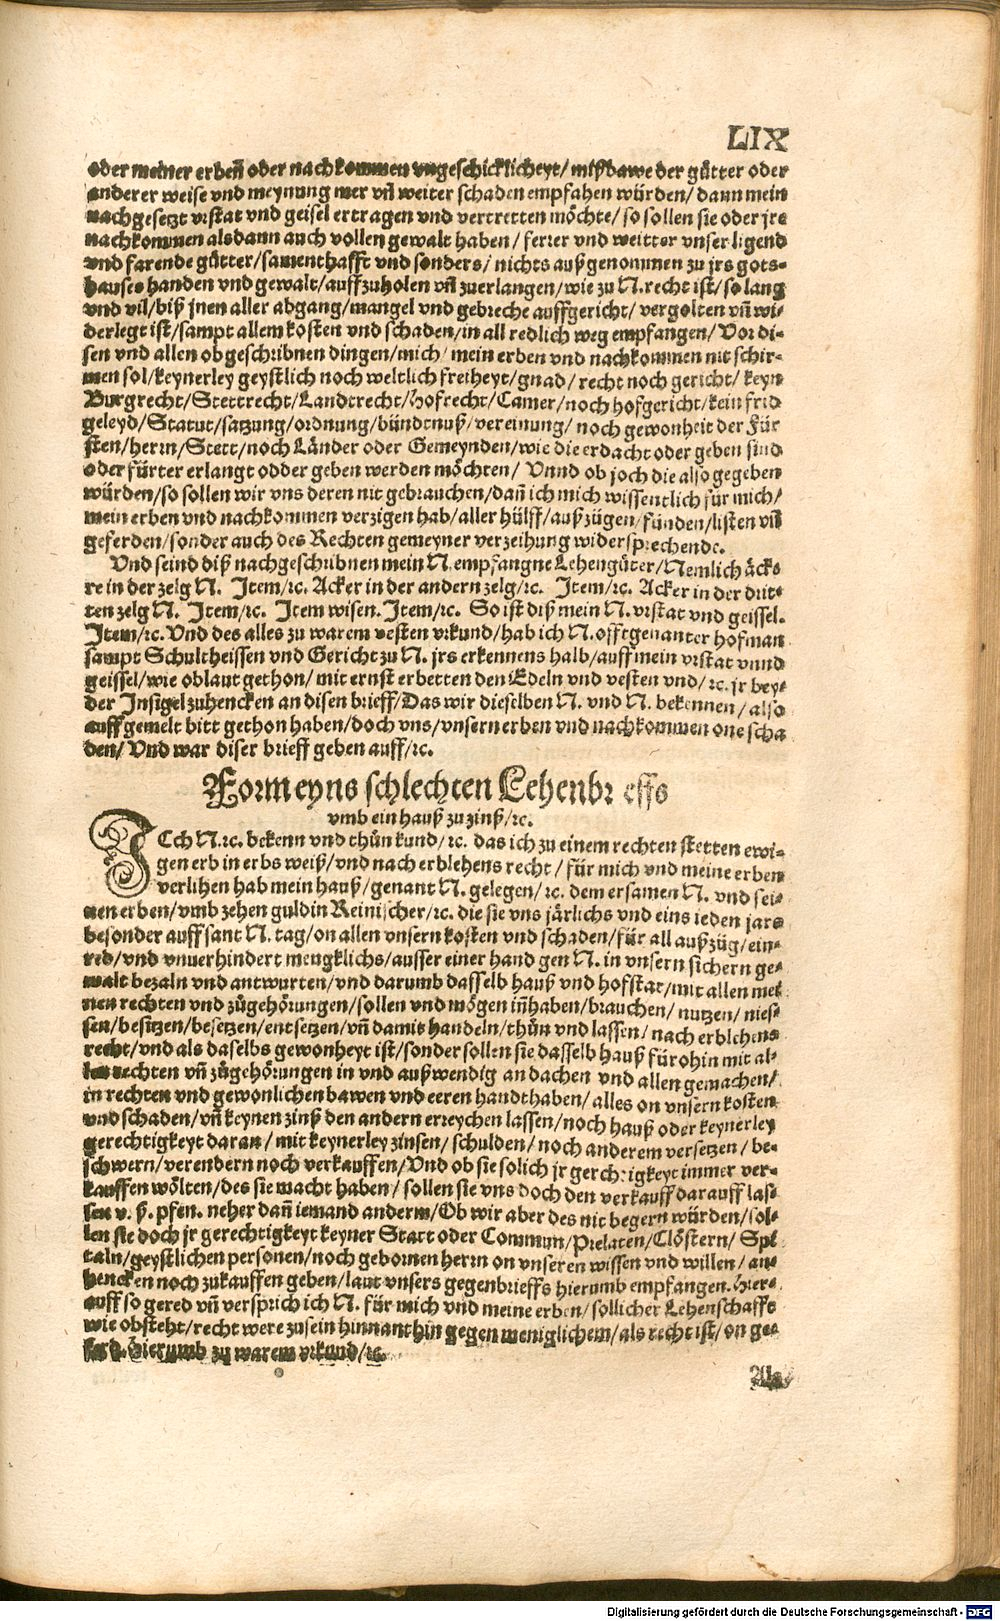 LIX
oder meiner erben̄ oder nachkommen vngeschicklicheyt/ mißbawe der gütter oder
anderer weise vnd meynung mer vn̄ weiter schaden empfahen würden/ dann mein
nachgesetzt vrstat vnd geisel ertragen vnd vertretten möchte/ so sollen sie oder jre
nachkommen alsdann auch vollen gewalt haben/ ferrer vnd weitter vnser ligend
vnd farende gütter/ samenthafft vnd sonders/ nichts außgenommen zu jrs gots-
hauses handen vnd gewalt/ auffzuholen vn̄ zuerlangen/ wie zu N. recht ist/ so lang
vnd vil/ biß jnen aller abgang/ mangel vnd gebreche auffgericht/ vergolten vn̄ wi-
derlegt ist/ sampt allem kosten vnd schaden/ in all redlich weg empfangen/ Vor di-
sen vnd allen obgeschribnen dingen/ mich/ mein erben vnd nachkommen nit schir-
men sol/ keynerley geystlich noch weltlich freiheyt/ gnad/ recht noch gericht/ keyn
Burgrecht/ Stettrecht/ Landtrecht/ Hofrecht/ Camer/ noch hofgericht/ kein frid
geleyd/ Statut/ satzung/ ordnung/ bündtnuß/ vereinung/ noch gewonheit der Für
sten/ herrn/ Stett/ noch Länder oder Gemeynden/ wie die erdacht oder geben sind
oder fürter erlangt odder geben werden möchten/ Vnnd ob joch die also gegeben
würden/ so sollen wir vns deren nit gebrauchen/ dan̄ ich mich wissentlich für mich/
mein erben vnd nachkommen verzigen hab/ aller hülff/ außzügen/ fünden/ listen vn̄
geferden/ sonder auch des Rechten gemeyner verzeihung widersprechende.
Vnd seind diß nachgeschribnen mein N. empfangne Lehengüter/ Nemlich äcke
re in der zelg N. Item/ ꝛc. Acker in der andern zelg/ ꝛc. Item/ ꝛc. Acker in der drit-
ten zelg N. Item/ ꝛc. Item wisen. Item/ ꝛc. So ist diß mein N. vrstat vnd geissel.
Item/ ꝛc. Vnd des alles zu warem vesten vrkund/ hab ich N. offtgenanter hofman
sampt Schultheissen vnd Gericht zu N. jrs erkennens halb/ auff mein vrstat vnnd
geissel/ wie oblaut gethon/ mit ernst erbetten den Edeln vnd vesten vnd/ ꝛc. jr bey-
der Insigel zuhencken an disen brieff/ Das wir dieselben N. vnd N. bekennen/ also
auff gemelt bitt gethon haben/ doch vns/ vnsern erben vnd nachkommen one scha
den/ Vnd war diser brieff geben auff/ ꝛc.
Form eyns schlechten Lehenbr effs
vmb ein hauß zu zinß/ ꝛc.
ICh N. ꝛc. bekenn vnd thůn kund/ ꝛc. das ich zu einem rechten stetten ewi-
gen erb in erbs weiß/ vnd nach erblehens recht/ für mich vnd meine erben
verlihen hab mein hauß/ genant N. gelegen/ ꝛc. dem ersamen N. vnd sei-
nen erben/ vmb zehen guldin Reinischer/ ꝛc. die sie vns järlichs vnd eins ieden jars
besonder auff sant N. tag/ on allen vnsern kosten vnd schaden/ für all außzüg/ ein-
red/ vnd vnuerhindert mengklichs/ ausser einer hand gen N. in vnsern sichern ge-
walt bezaln vnd antwurten/ vnd darumb dasselb hauß vnd hofstat/ mit allen mei
nen rechten vnd zůgehörungen/ sollen vnd mögen in̄haben/ brauchen/ nutzen/ nies-
sen/ besitzen/ besetzen/ entsetzen/ vn̄ damit handeln/ thůn vnd lassen/ nach erblehens
recht/ vnd als daselbs gewonheyt ist/ sonder sollen sie dasselb hauß fürohin mit al-
len rechten vn̄ zůgehörungen in vnd außwendig an dachen vnd allen gemachen/
in rechten vnd gewonlichen bawen vnd eeren handthaben/ alles on vnsern kosten
vnd schaden/ vn̄ keynen zinß den andern erreychen lassen/ noch hauß oder keynerley
gerechtigkeyt daran/ mit keynerley zinsen/ schulden/ noch anderem versetzen/ be-
schwern/ verendern noch verkauffen/ Vnd ob sie solich jr gerechtigkeyt immer ver-
kauffen wölten/ des sie macht haben/ sollen sie vns doch den verkauff darauff las-
sen v. ß. pfen. neher dan̄ iemand anderm/ Ob wir aber des nit begern würden/ sol-
len sie doch jr gerechtigkeyt keyner Statt oder Commun/ Prelaten/ Clöstern/ Spi
taln/ geystlichen personen/ noch gebornen herrn on vnseren wissen vnd willen/ an-
hencken noch zukauffen geben/ laut vnsers gegenbrieffs hierumb empfangen. Hier-
auff so gered vn̄ versprich ich N. für mich vnd meine erben/ sollicher Lehenschafft
wie obsteht/ recht were zusein hinnanthin gegen meniglichem/ als recht ist/ on ge-
ferd. Hierumb zu warem vrkund/ ꝛc.
Digitalisierung gefördert durch die Deutsche Forschungsgemeinschaft - DFG